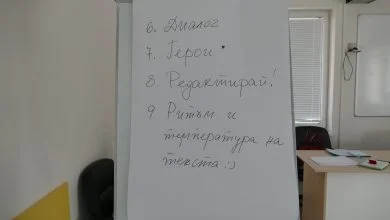 6. Диалог
7. Герои
8. Редактирай!
9 Ритъм и
температура на
текста :)